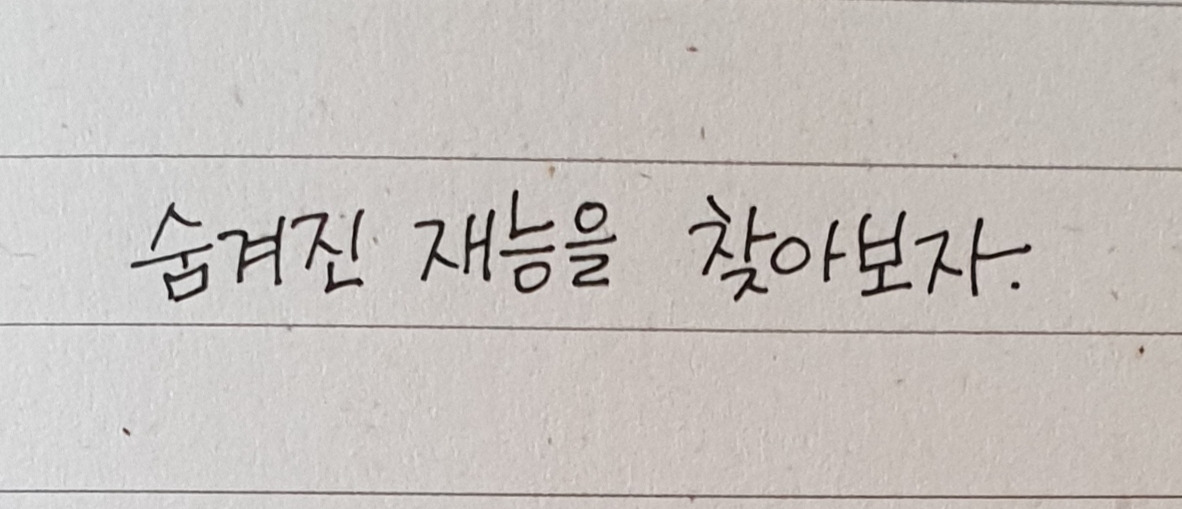 숨겨진 재능을 찾아보자.